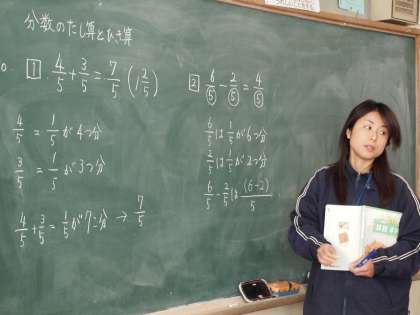 分数のたし算とひき算
1 4/5 + 3/5 = 7/5 (1 2/5)
4/5 = 1/5 が 4つ分
3/5 = 1/5 が 3つ分
4/5 + 3/5 = 1/5 が 7こ分 → 7/5
2 6/5 - 2/5 = 4/5
6/5 は 1/5 が 6つ分
2/5 は 1/5 が 2つ分
6/5 - 2/5 は (6-2)/5
算数